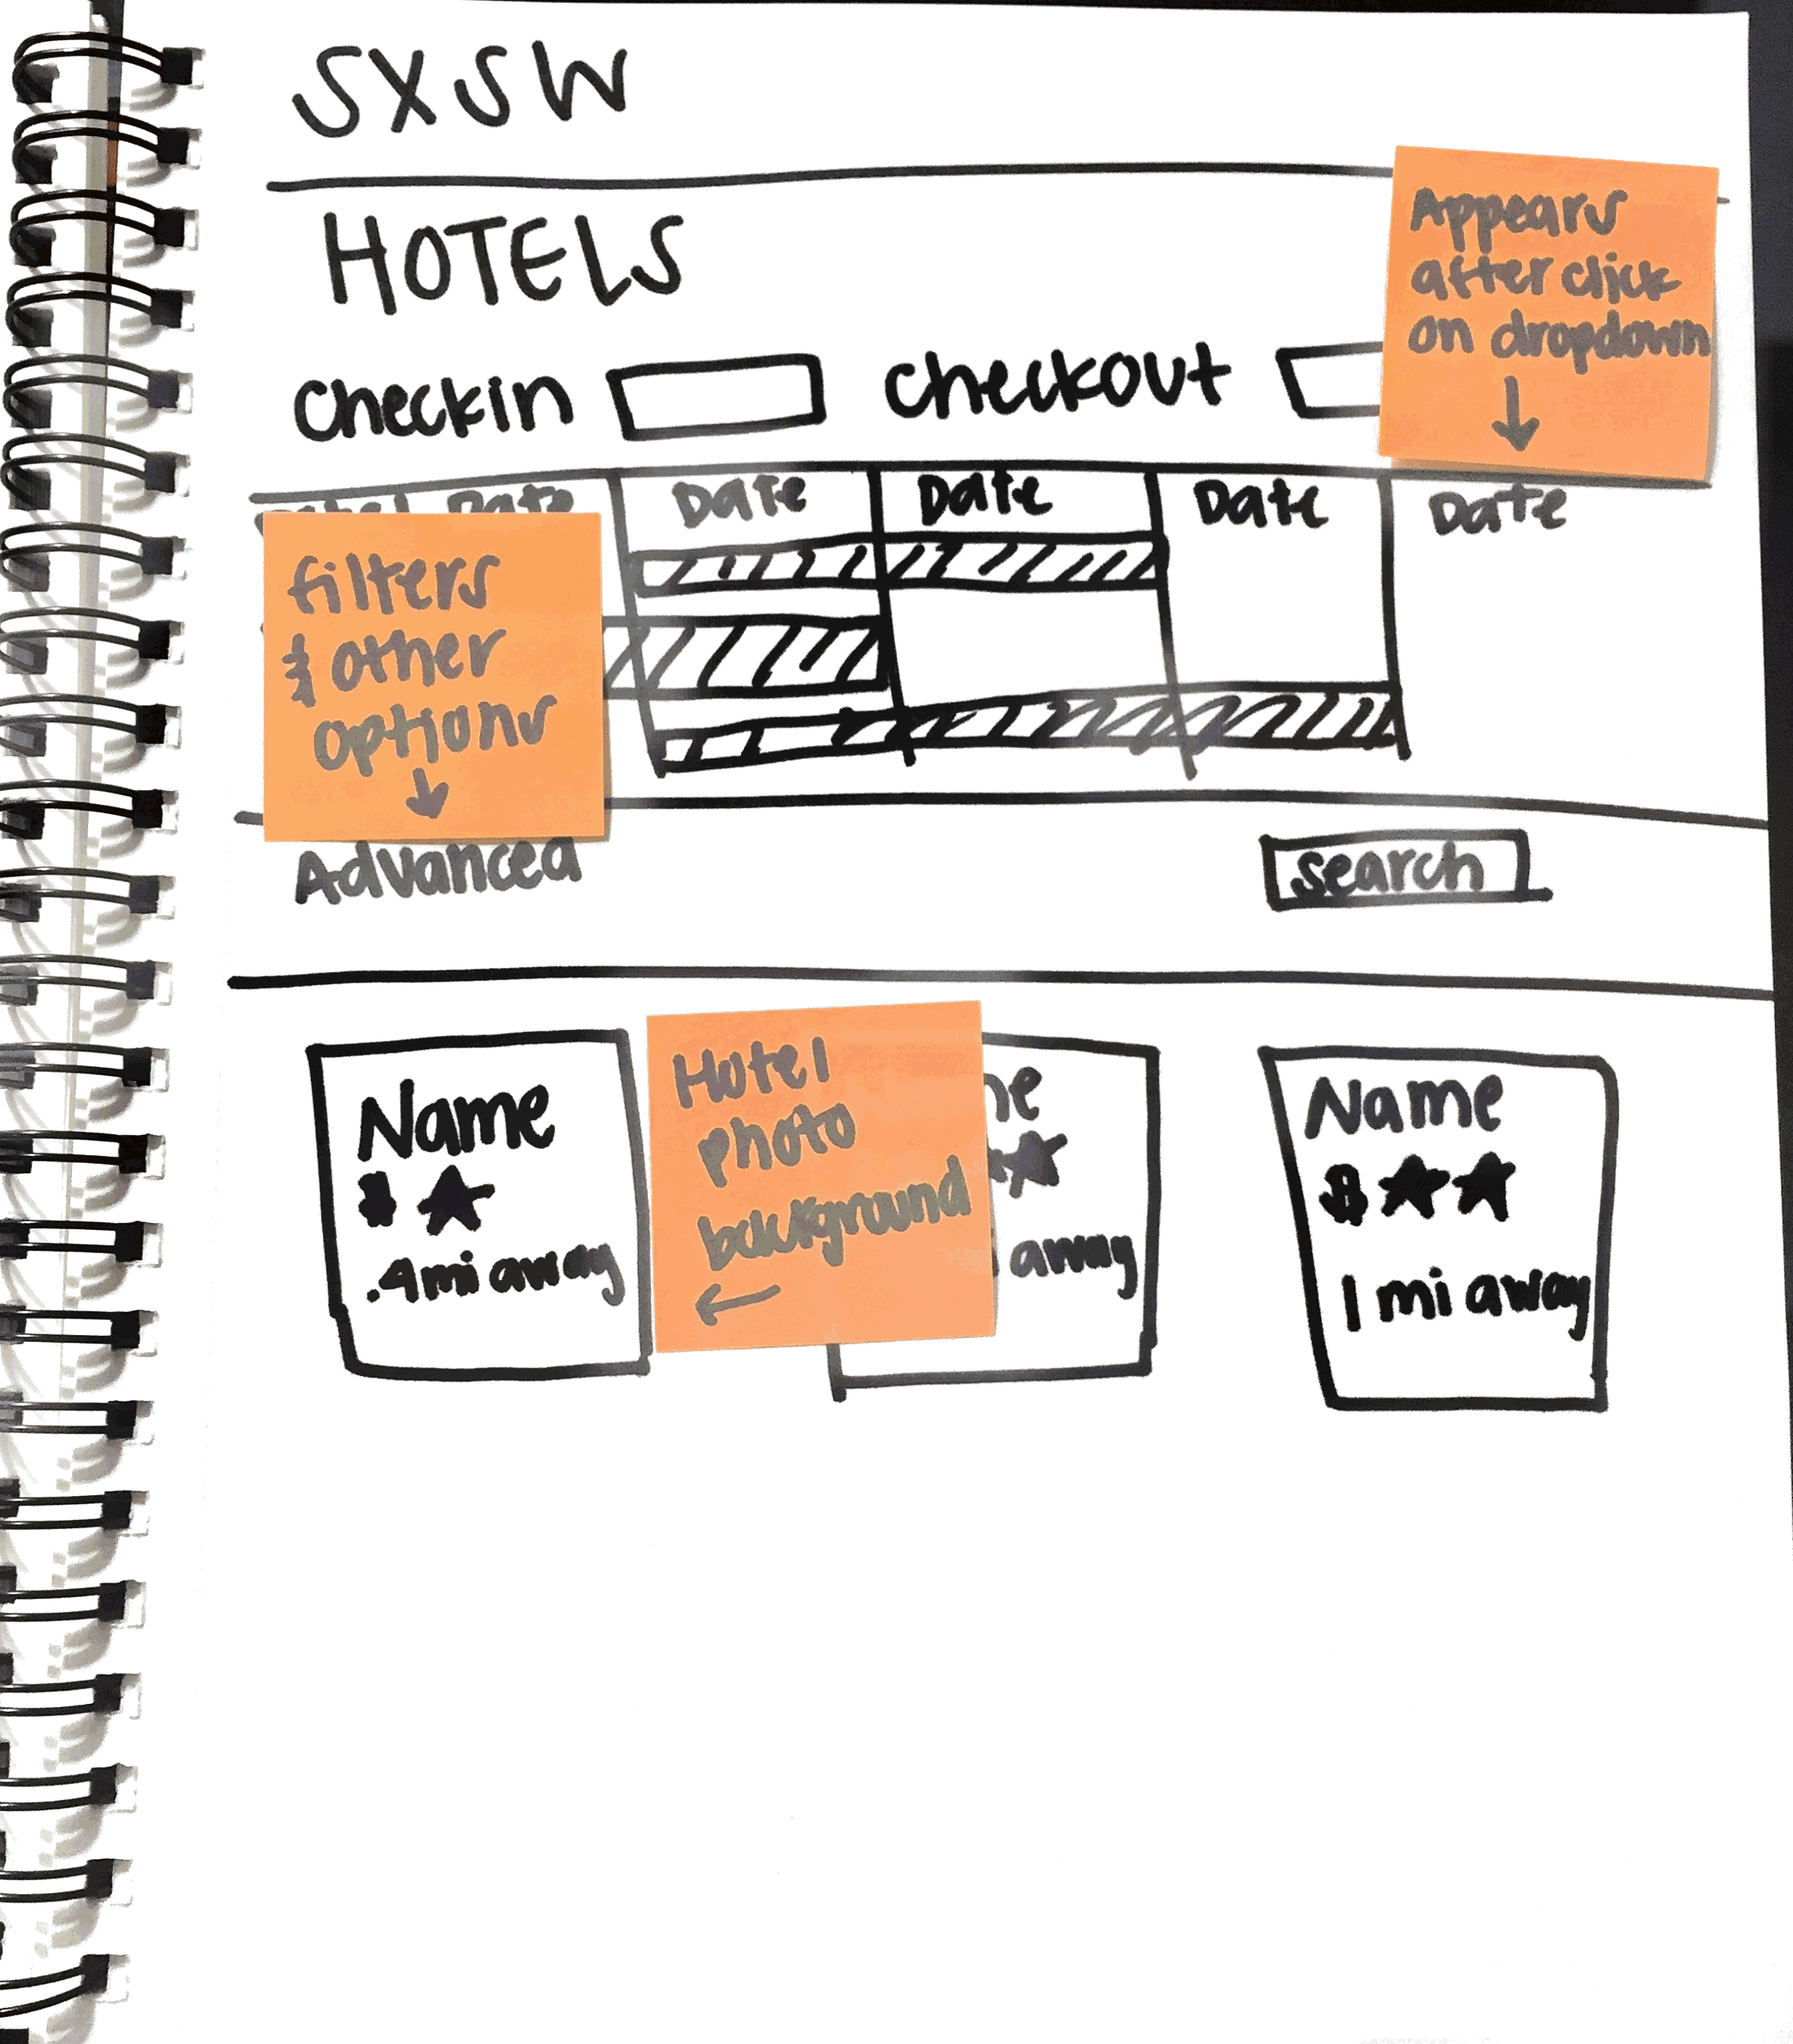 SXSW
HOTELS
Appears
after click
on dropdown
↓
Checkin
Checkout
Date Date Date Date Date
filters
& other
options
↓
Advanced
search
Name
$ ★
.4mi away
Hotel
photo
background
←
★
away
Name
$ ★★
1 mi away